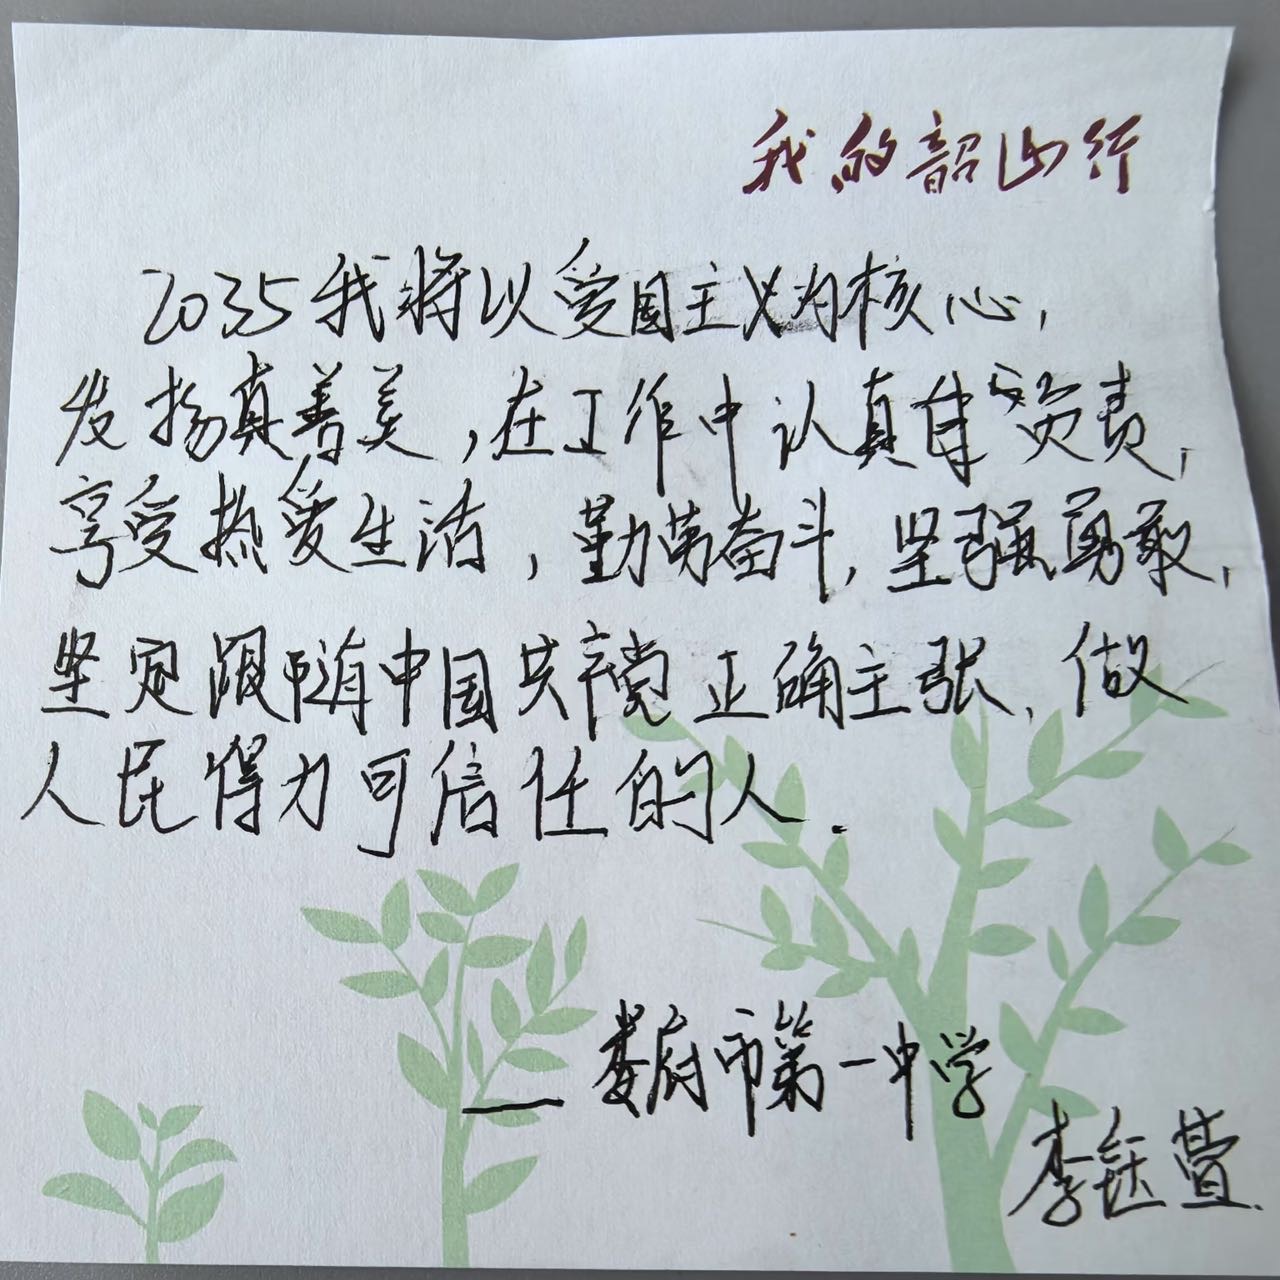 我的韶山行
2035我将以爱国主义为核心,
发扬真善美,在工作中认真负责,
享受热爱生活,勤劳奋斗,坚强勇敢,
坚定跟随中国共产党正确主张,做
人民得力可信任的人.
——娄底市第一中学
李钰萱.